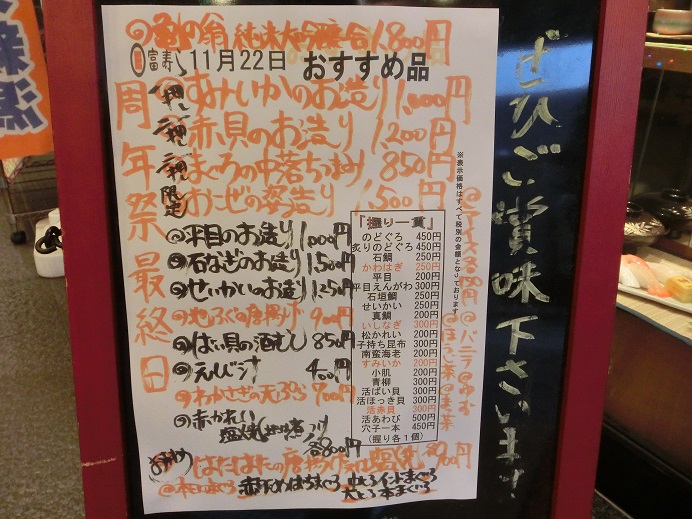 亀の翁 純米大吟醸 一合 1,800円
富寿し 11月22日 おすすめ品
周年祭最終日
一押し すみいかのお造り 1,000円
二押し 赤貝のお造り 1,200円
三押し まぐろの中落ちつまみ 850円
限定 おこぜの姿造り 1,500円
◎平目のお造り 1,000円
◎石なぎのお造り 1,150円
◎せいかいのお造り 1,250円
◎地ふぐの唐揚げ 900円
◎ばい貝の酒むし 850円
◎えび汁 400円
◎わかさぎの天ぷら 700円
◎赤かれい
塩焼 煮つけ
各800円
はたはたの唐揚 塩焼
◎本日のまぐろ 赤身めばちまぐろ 中とろインドまぐろ
大とろ本まぐろ
『握り一貫』
のどぐろ 450円
炙りのどぐろ 450円
石鯛 250円
かわはぎ 250円
平目 200円
平目えんがわ 300円
石垣鯛 250円
せいかい 200円
真鯛 200円
いしなぎ 300円
松かれい 200円
子持ち昆布 300円
南蛮海老 200円
すみいか 200円
小肌 200円
青柳 300円
活ばい貝 300円
活ほっき貝 300円
活赤貝 300円
活あわび 500円
穴子一本 450円
（握り各1個）
※表示価格はすべて税別の金額となっております
◎バニラ◎ゆず
◎ほうじ茶◎抹茶
ぜひご賞味下さいませ!